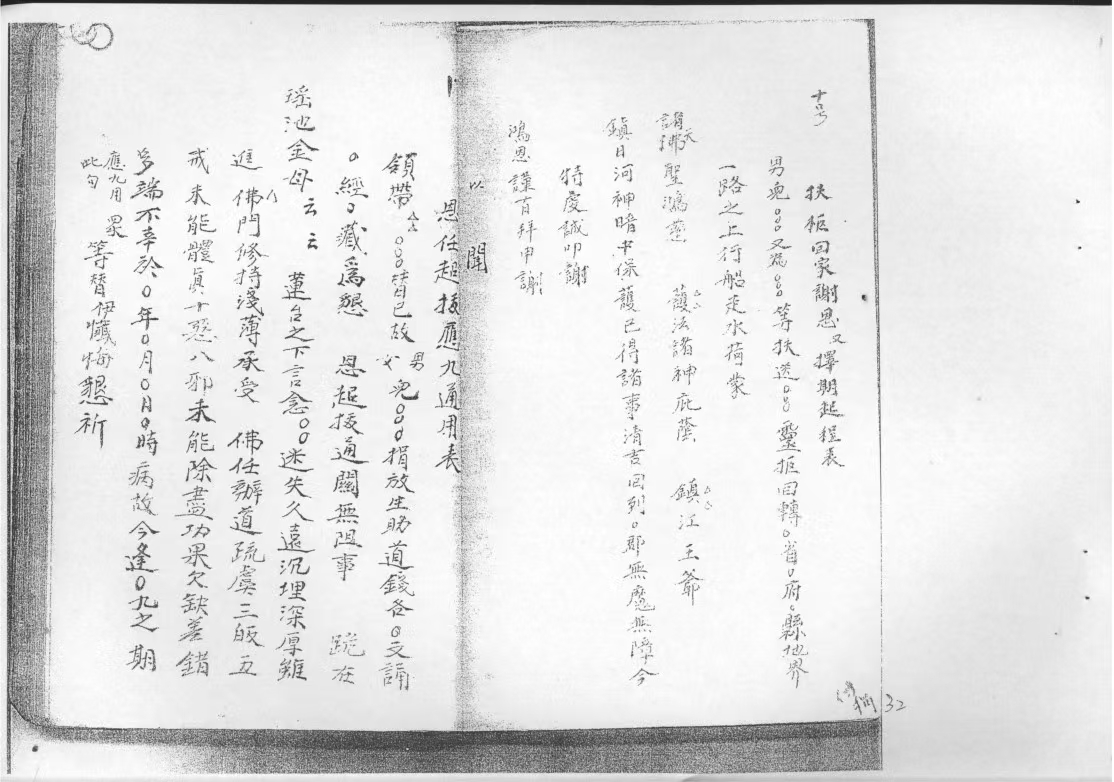 十号
扶柩回家謝恩又擇期起程表
男兒○○○又兒○○○等扶送○○○靈柩回轉○省○府○縣地界
一路之上行船走水荷蒙
諸天佛聖鴻慈 護法諸神庇蔭 鎮江王爺
鎮日河神暗中保護已得諸事清吉回到○郡無魔無障今
特虔誠叩謝
鴻恩謹百拜申謝
以聞
恩任超拔應九通用表
領帶○○○詰已故男女兒○○○捐放生助道錢各○文誦
○經○藏為懇 恩超拔通關無阻事 跪在
瑶池金母云云 蓮台之下言念○○迷失久遠沉埋深厚雖
進佛門修持淺薄承受 佛任辦道疏虞三皈五
戒未能體真十惡八邪未能除盡功果欠缺差錯
多端不幸於○年○月○日○時病故今逢○九之期
應九用此句 眾等替伊懺悔懇祈
32